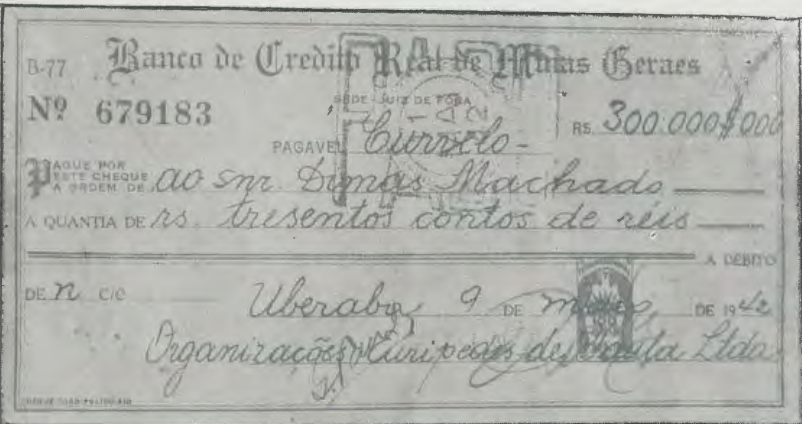 B-77 Banco de Credito Real de Minas Geraes
Nº 679183
SEDE - JUIZ DE FORA
PAGAVEL Curvelo - RS. 300.000$000
PAGUE POR
ESTE CHEQUE
A ORDEM DE ao snr Dimas Machado
A QUANTIA DE rs. tresentos contos de réis
A DEBITO
DE N C/C Uberaba, 9 DE DE 1942
Organizações Euripedes de Paula Ltda